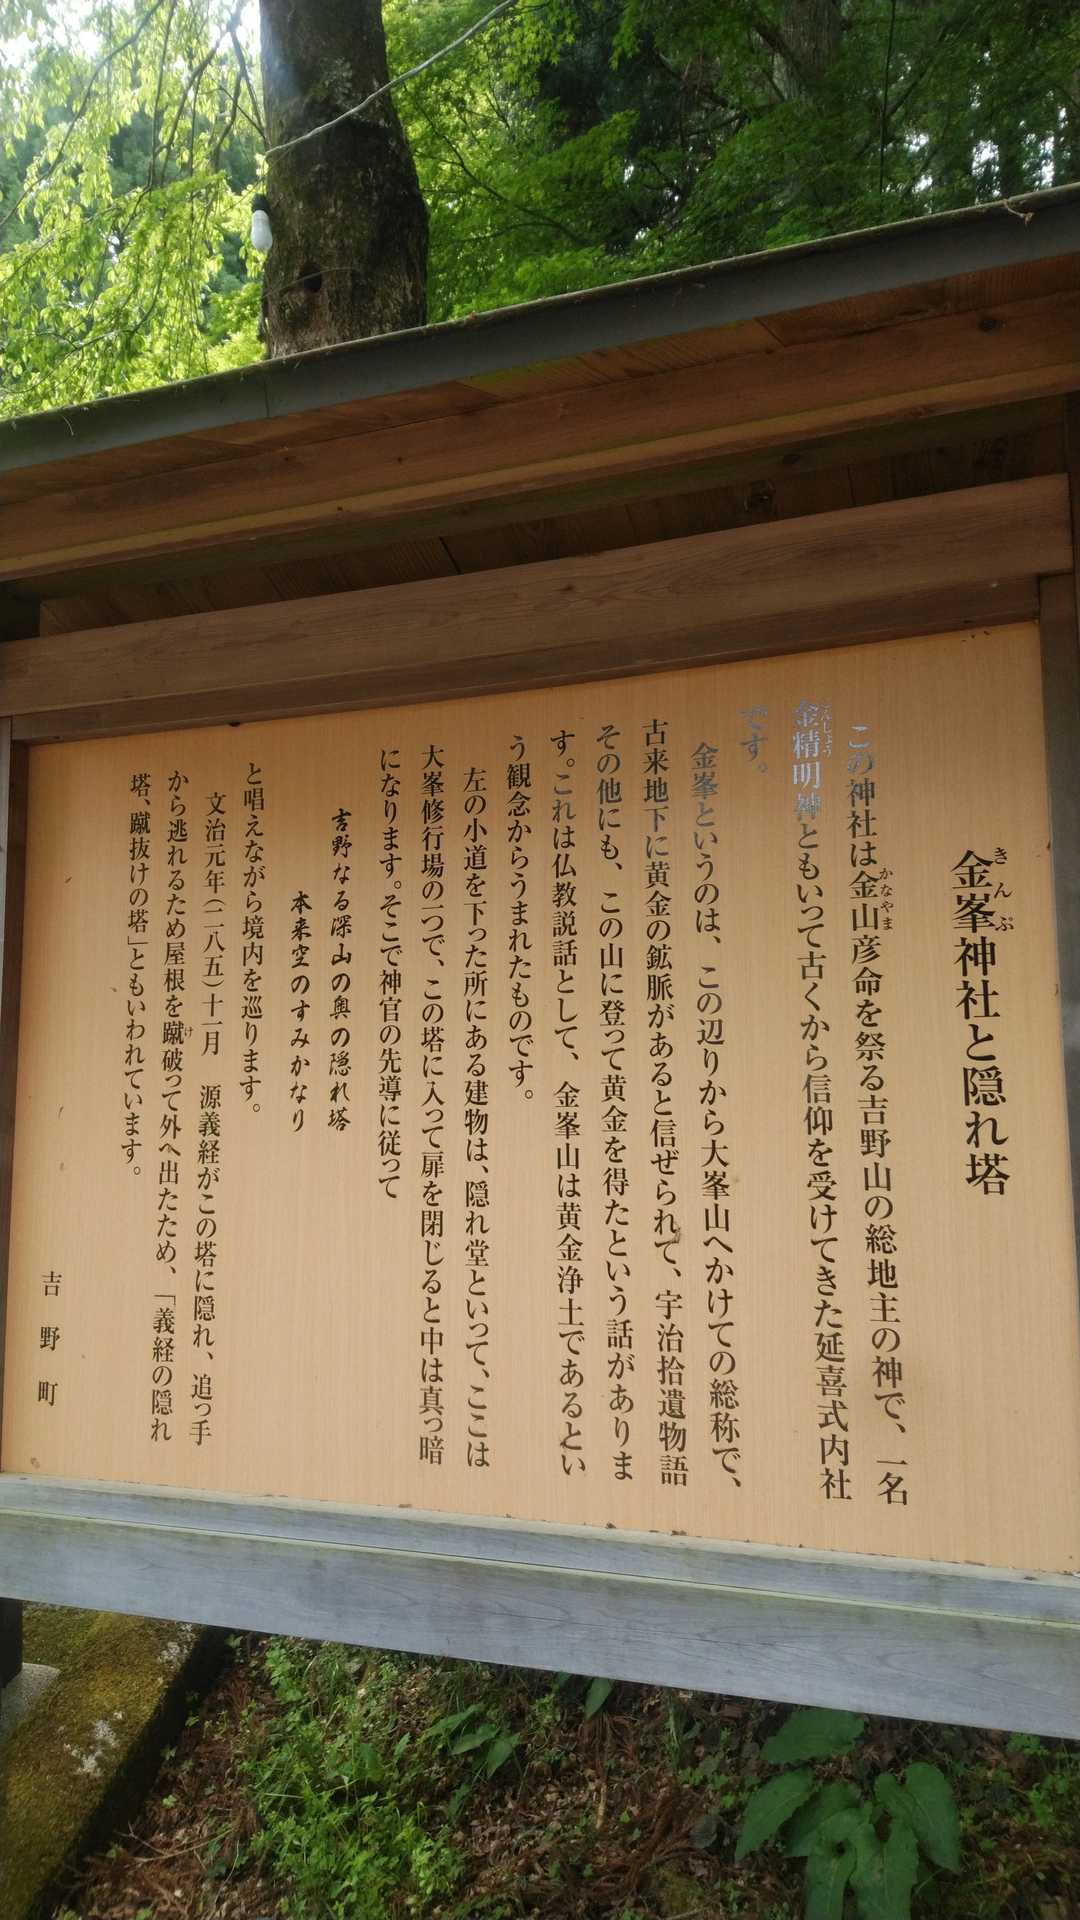 金峯神社と隠れ塔
きんぷ
この神社は金山彦命を祭る吉野山の総地主の神で、一名
かなやま
金精明神ともいって古くから信仰を受けてきた延喜式内社
んしょう
です。
金峯というのは、この辺りから大峯山へかけての総称で、
古来地下に黄金の鉱脈があると信ぜられて、宇治拾遺物語
その他にも、この山に登って黄金を得たという話がありま
す。これは仏教説話として、金峯山は黄金浄土であるとい
う観念からうまれたものです。
左の小道を下った所にある建物は、隠れ堂といって、ここは
大峯修行場の一つで、この塔に入って扉を閉じると中は真っ暗
になります。そこで神官の先導に従って
吉野なる深山の奥の隠れ塔
本来空のすみかなり
と唱えながら境内を巡ります。
文治元年(一一八五)十一月 源義経がこの塔に隠れ、追っ手
から逃れるため屋根を蹴破って外へ出たため、「義経の隠れ
け
塔、蹴抜けの塔」ともいわれています。
吉野町